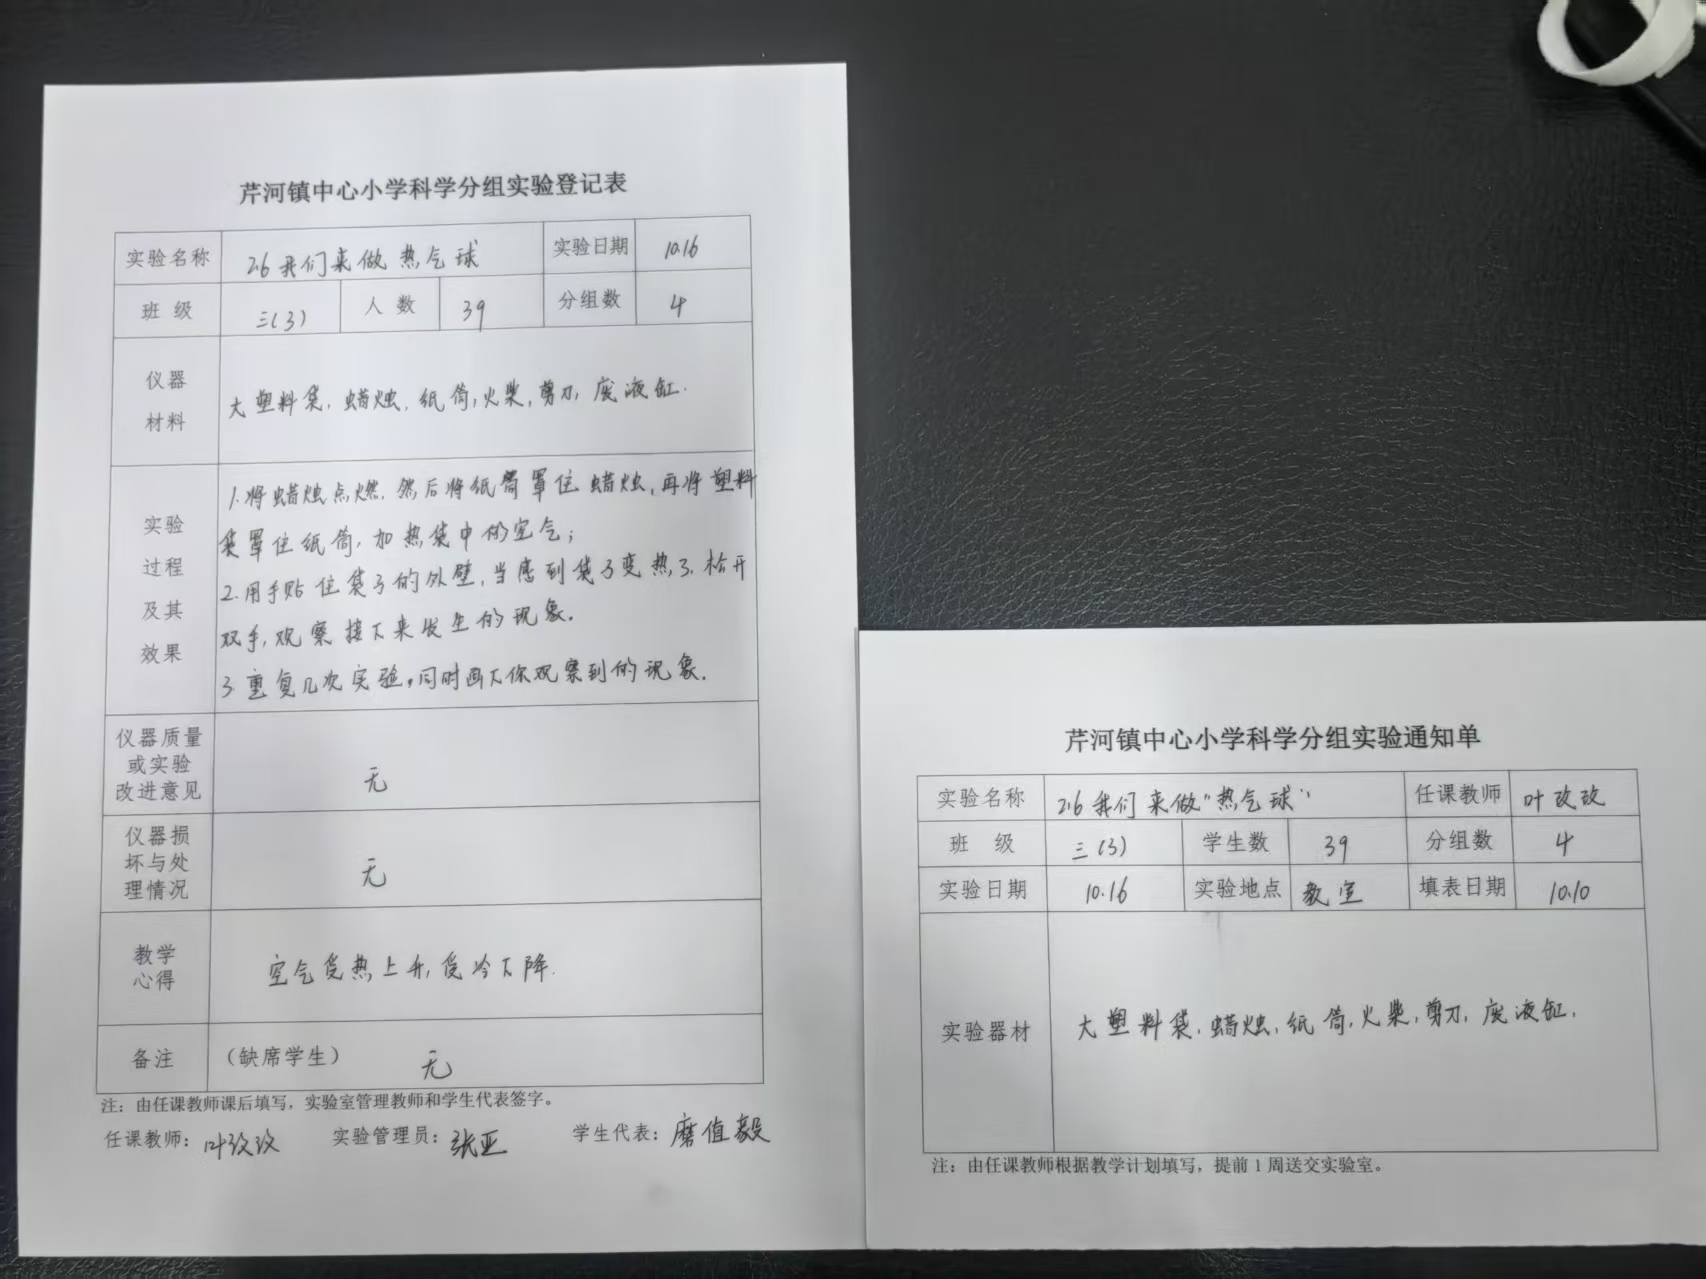 芹河镇中心小学科学分组实验登记表
实验名称 2.6 我们来做热气球 实验日期 10.16
班 级 三(3) 人 数 39 分组数 4
仪器
材料
大塑料袋,蜡烛,纸筒,火柴,剪刀,废液缸.
实验
过程
及其
效果
1.将蜡烛点燃,然后将纸筒罩住蜡烛,再将塑料
袋罩住纸筒,加热袋中的空气;
2.用手贴住袋子的外壁,当感到袋子变热了,松开
双手,观察接下来发生的现象.
3.重复几次实验,同时画下你观察到的现象.
仪器质量
或实验
改进意见
无
仪器损
坏与处
理情况
无
教学
心得
空气受热上升,受冷下降.
备注 (缺席学生) 无
注：由任课教师课后填写，实验室管理教师和学生代表签字。
任课教师：叶玫玫 实验管理员：张亚 学生代表：值毅
芹河镇中心小学科学分组实验通知单
实验名称 2.6 我们来做“热气球” 任课教师 叶玫玫
班 级 三(3) 学生数 39 分组数 4
实验日期 10.16 实验地点 教室 填表日期 10.10
实验器材 大塑料袋,蜡烛,纸筒,火柴,剪刀,废液缸.
注：由任课教师根据教学计划填写，提前1周送交实验室。